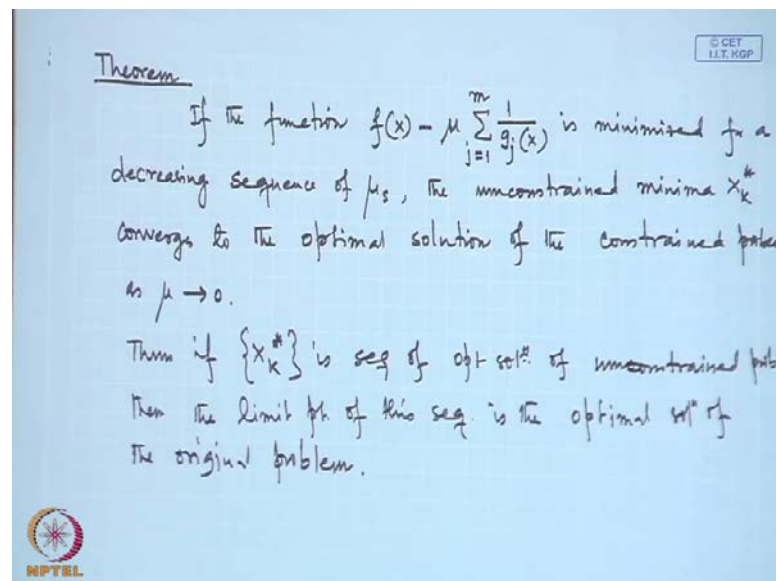 © CET
I.I.T. KGP
Theorem
If the function f(x) - μ ∑_{j=1}^{m} 1/g_j(x) is minimised for a
decreasing sequence of μ_s, the unconstrained minima X_k^*
converges to the optimal solution of the constrained
as μ → 0.
Then if {X_k^*} is seq of opt sol^n. of unconstrained
then the limit pt. of this seq. is the optimal sol^n of
the original problem.
NPTEL